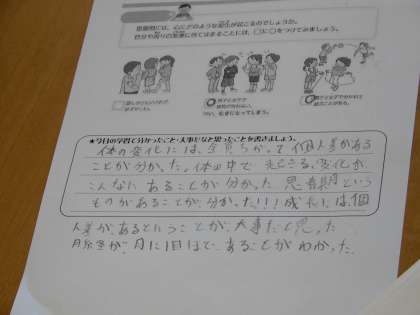 思春期には、心にどのような変化が起こるのでしょうか。
自分や周りの友達に当てはまることには、□に○をつけてみましょう。
★今日の学習で分かったこと・大事だなと思ったことを書きましょう。
体の変化には、全員ちがって個人差がある
ことが分かった。体の中で起こる、変化が
こんなにあることが分かった 思春期という
ものがあることが分かった!!!成長には個
人差があるということが大事だと思った
月経が、月に1回ほど、あることがわかった